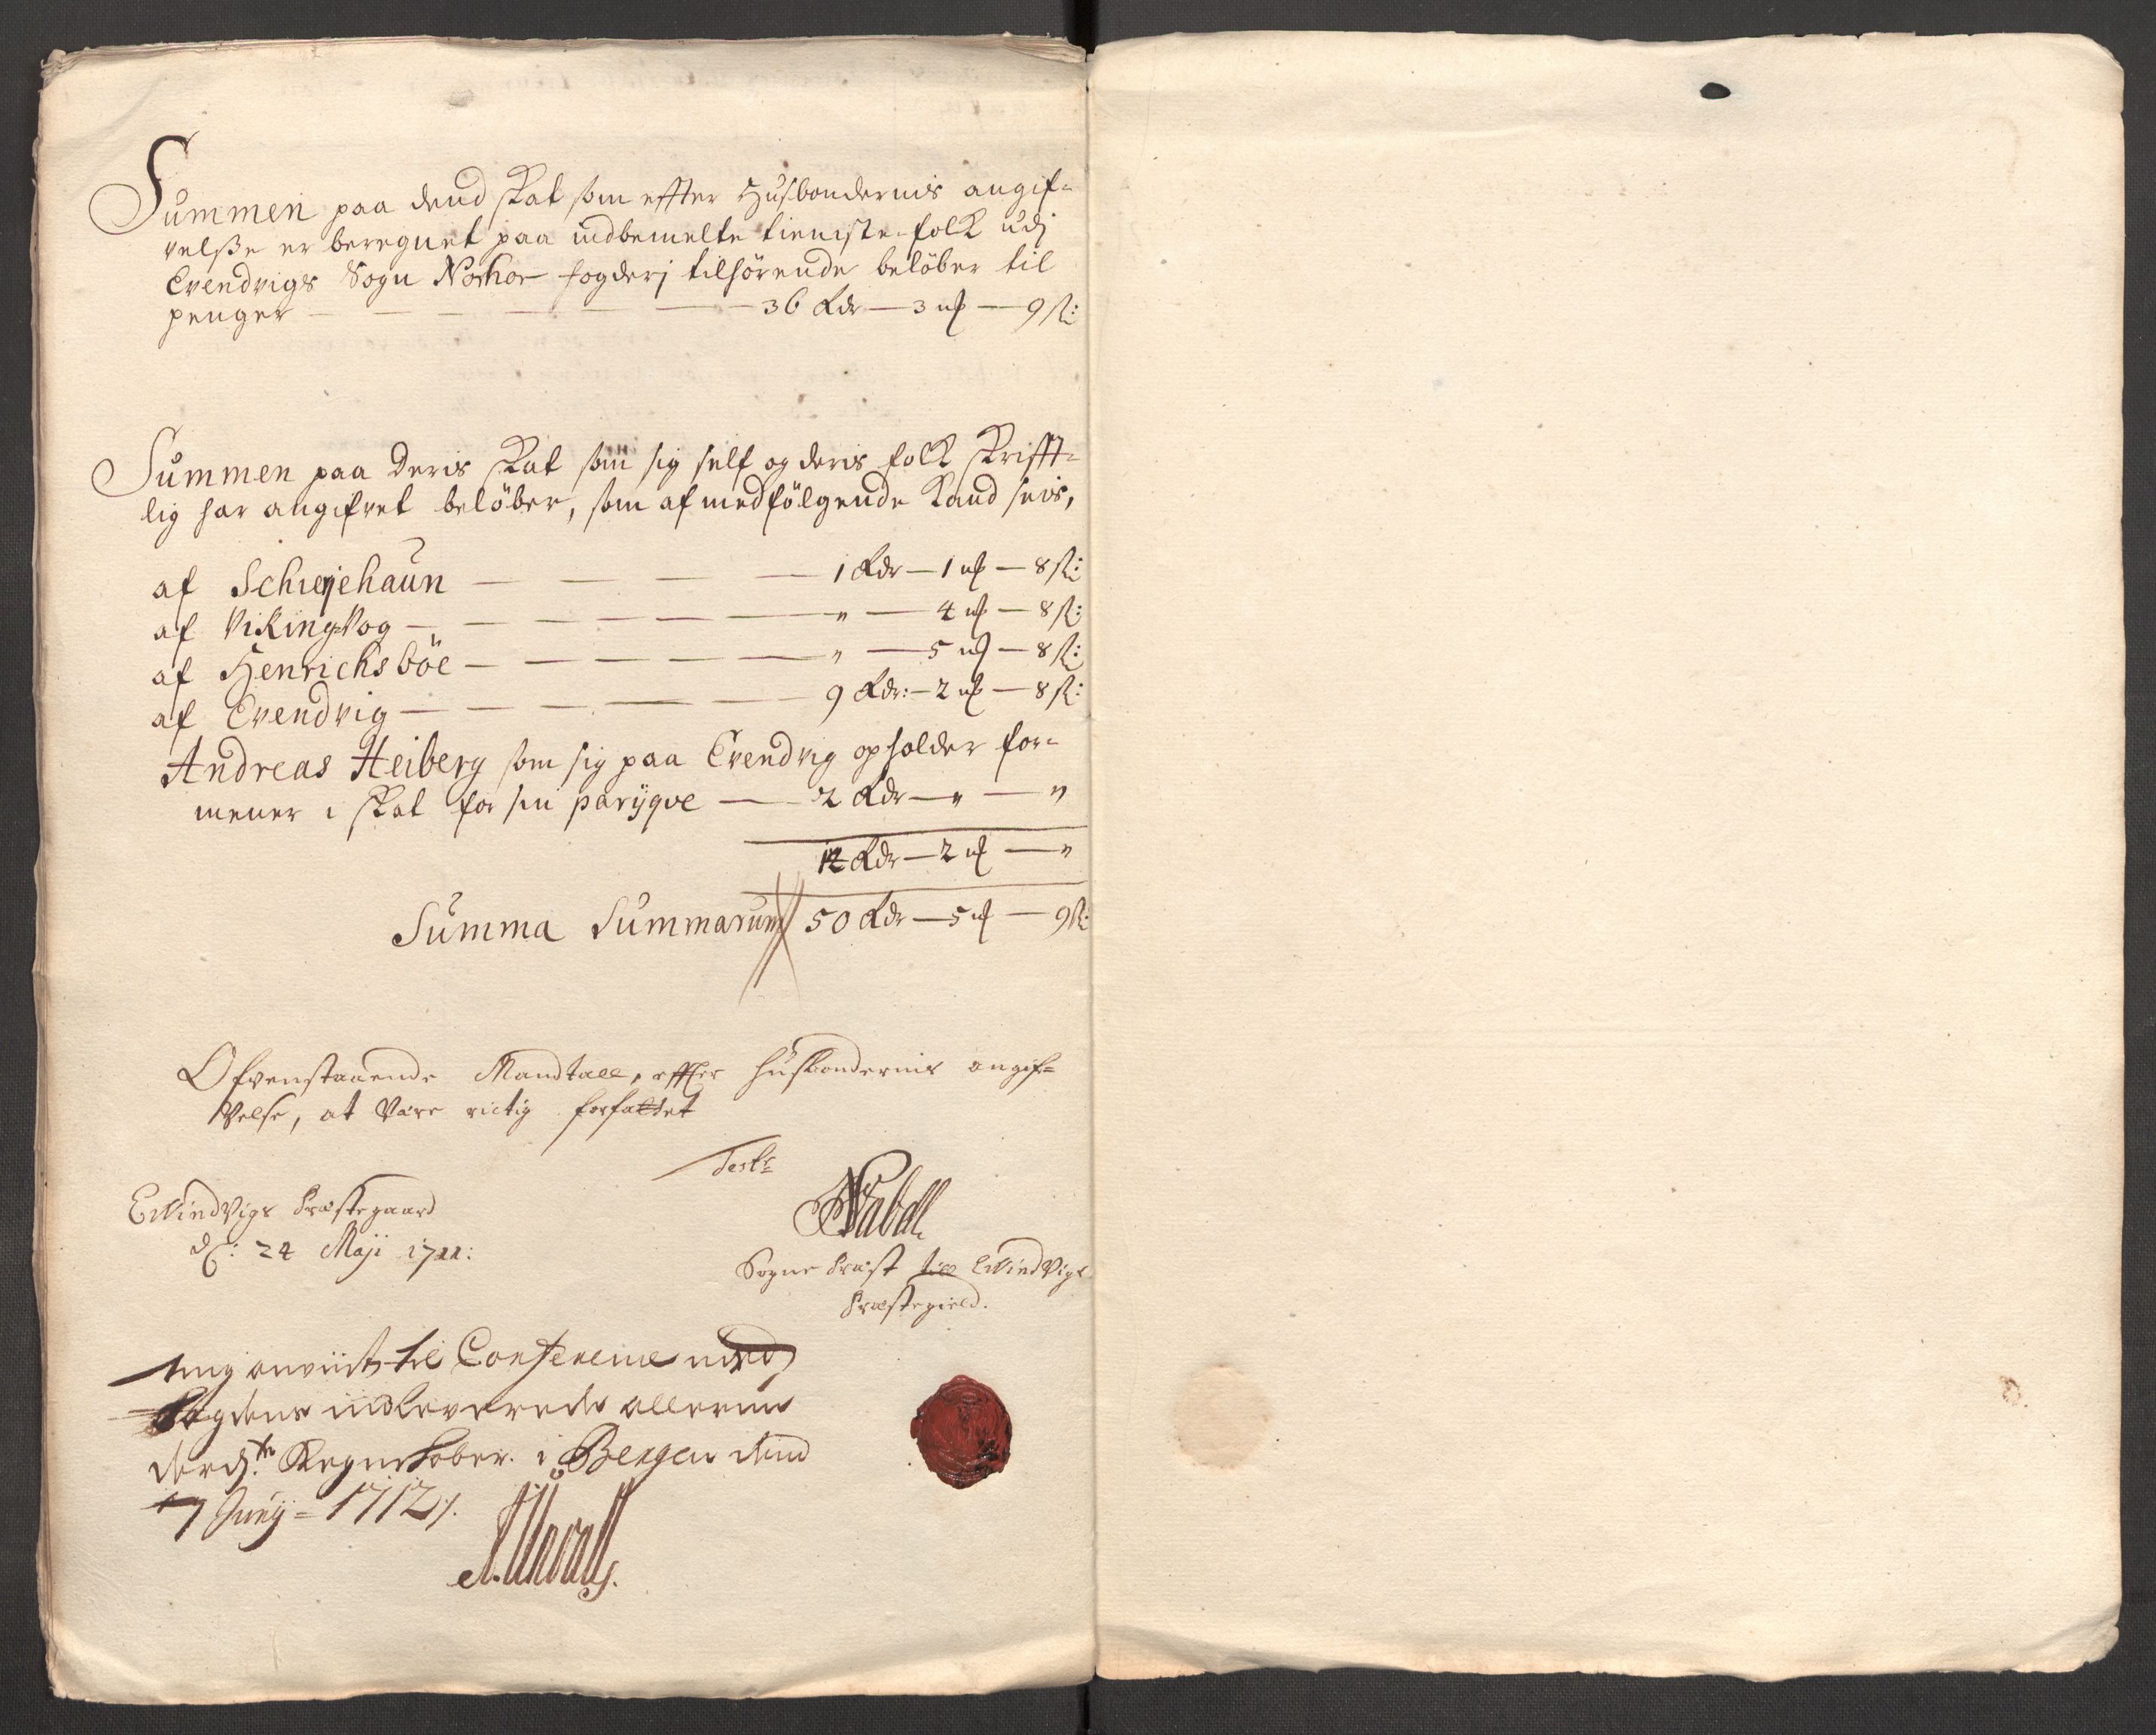 Summen paa dend skat som effter Husbondernis angif-
velsse er beregnet paa indbemelte tieniste-folk udj
Evendvigs Sogn Norhor fogderj tilhörende belöber til
penger — 36 Rdr — 3 mk — 9 sk:
Summen paa deris skat som sig self og deris folk skrifft-
lig har angifvet belöber, som af medfölgende kand seis,
af Schierjehaun — 1 Rdr — 1 mk — 8 sk:
af VikingVog — " — 4 mk — 8 sk:
af Henrichsböe — " — 5 mk — 8 sk:
af Evendvig — 9 Rdr: — 2 mk — 8 sk:
Andreas Heiberg som sig paa Evendvig opholder for-
mener i skat for sin parÿqve — 2 Rdr — " — "
14 Rdr — 2 mk — "
Summa Summarum 50 Rdr — 5 mk — 9 sk:
Ofvenstaaende Mandtall, effter husbondernis angif=
velse, at være rictig forfattet
Teste
EvindVigs Præstegaard
d: 24 Maji 1711:
Sogne Præst till EvindVigs
Præstegield.
 anviist til Conference med
fogdens indleverede allerun
derd:te Regenskaber. i Bergen dend
17 Junij = 1712 /.